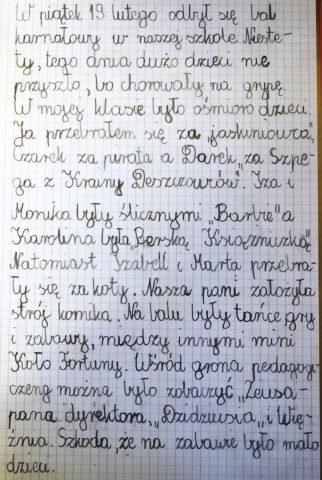 W piątek 19 lutego odbył się bal
karnałowy w naszej szkole Nieste-
ty, tego dnia dużo dzieci nie
przyszło, bo chorowały na grypę.
W mojej klasie było ośmioro dzieci.
Ja przebrałem się za „jaskiniowca",
Czarek za pirata a Darek „za Szpe-
ga z Krainy Deszczowców". Iza i
Monika były ślicznymi „Barbie" a
Karolina była „Perską Księżniczką".
Natomiast Izabell i Marta przebra-
ły się za koty. Nasza pani założyła
strój komika. Na balu były tańce, gry
i zabawy, między innymi mini
Koło Fortuny. Wśród grona pedagogi-
czneg można było zobaczyć „Zeusa-
pana dyrektora, „Dzidziusia" i Wię-
źnia. Szkoda, że na zabawie było mało
dzieci.